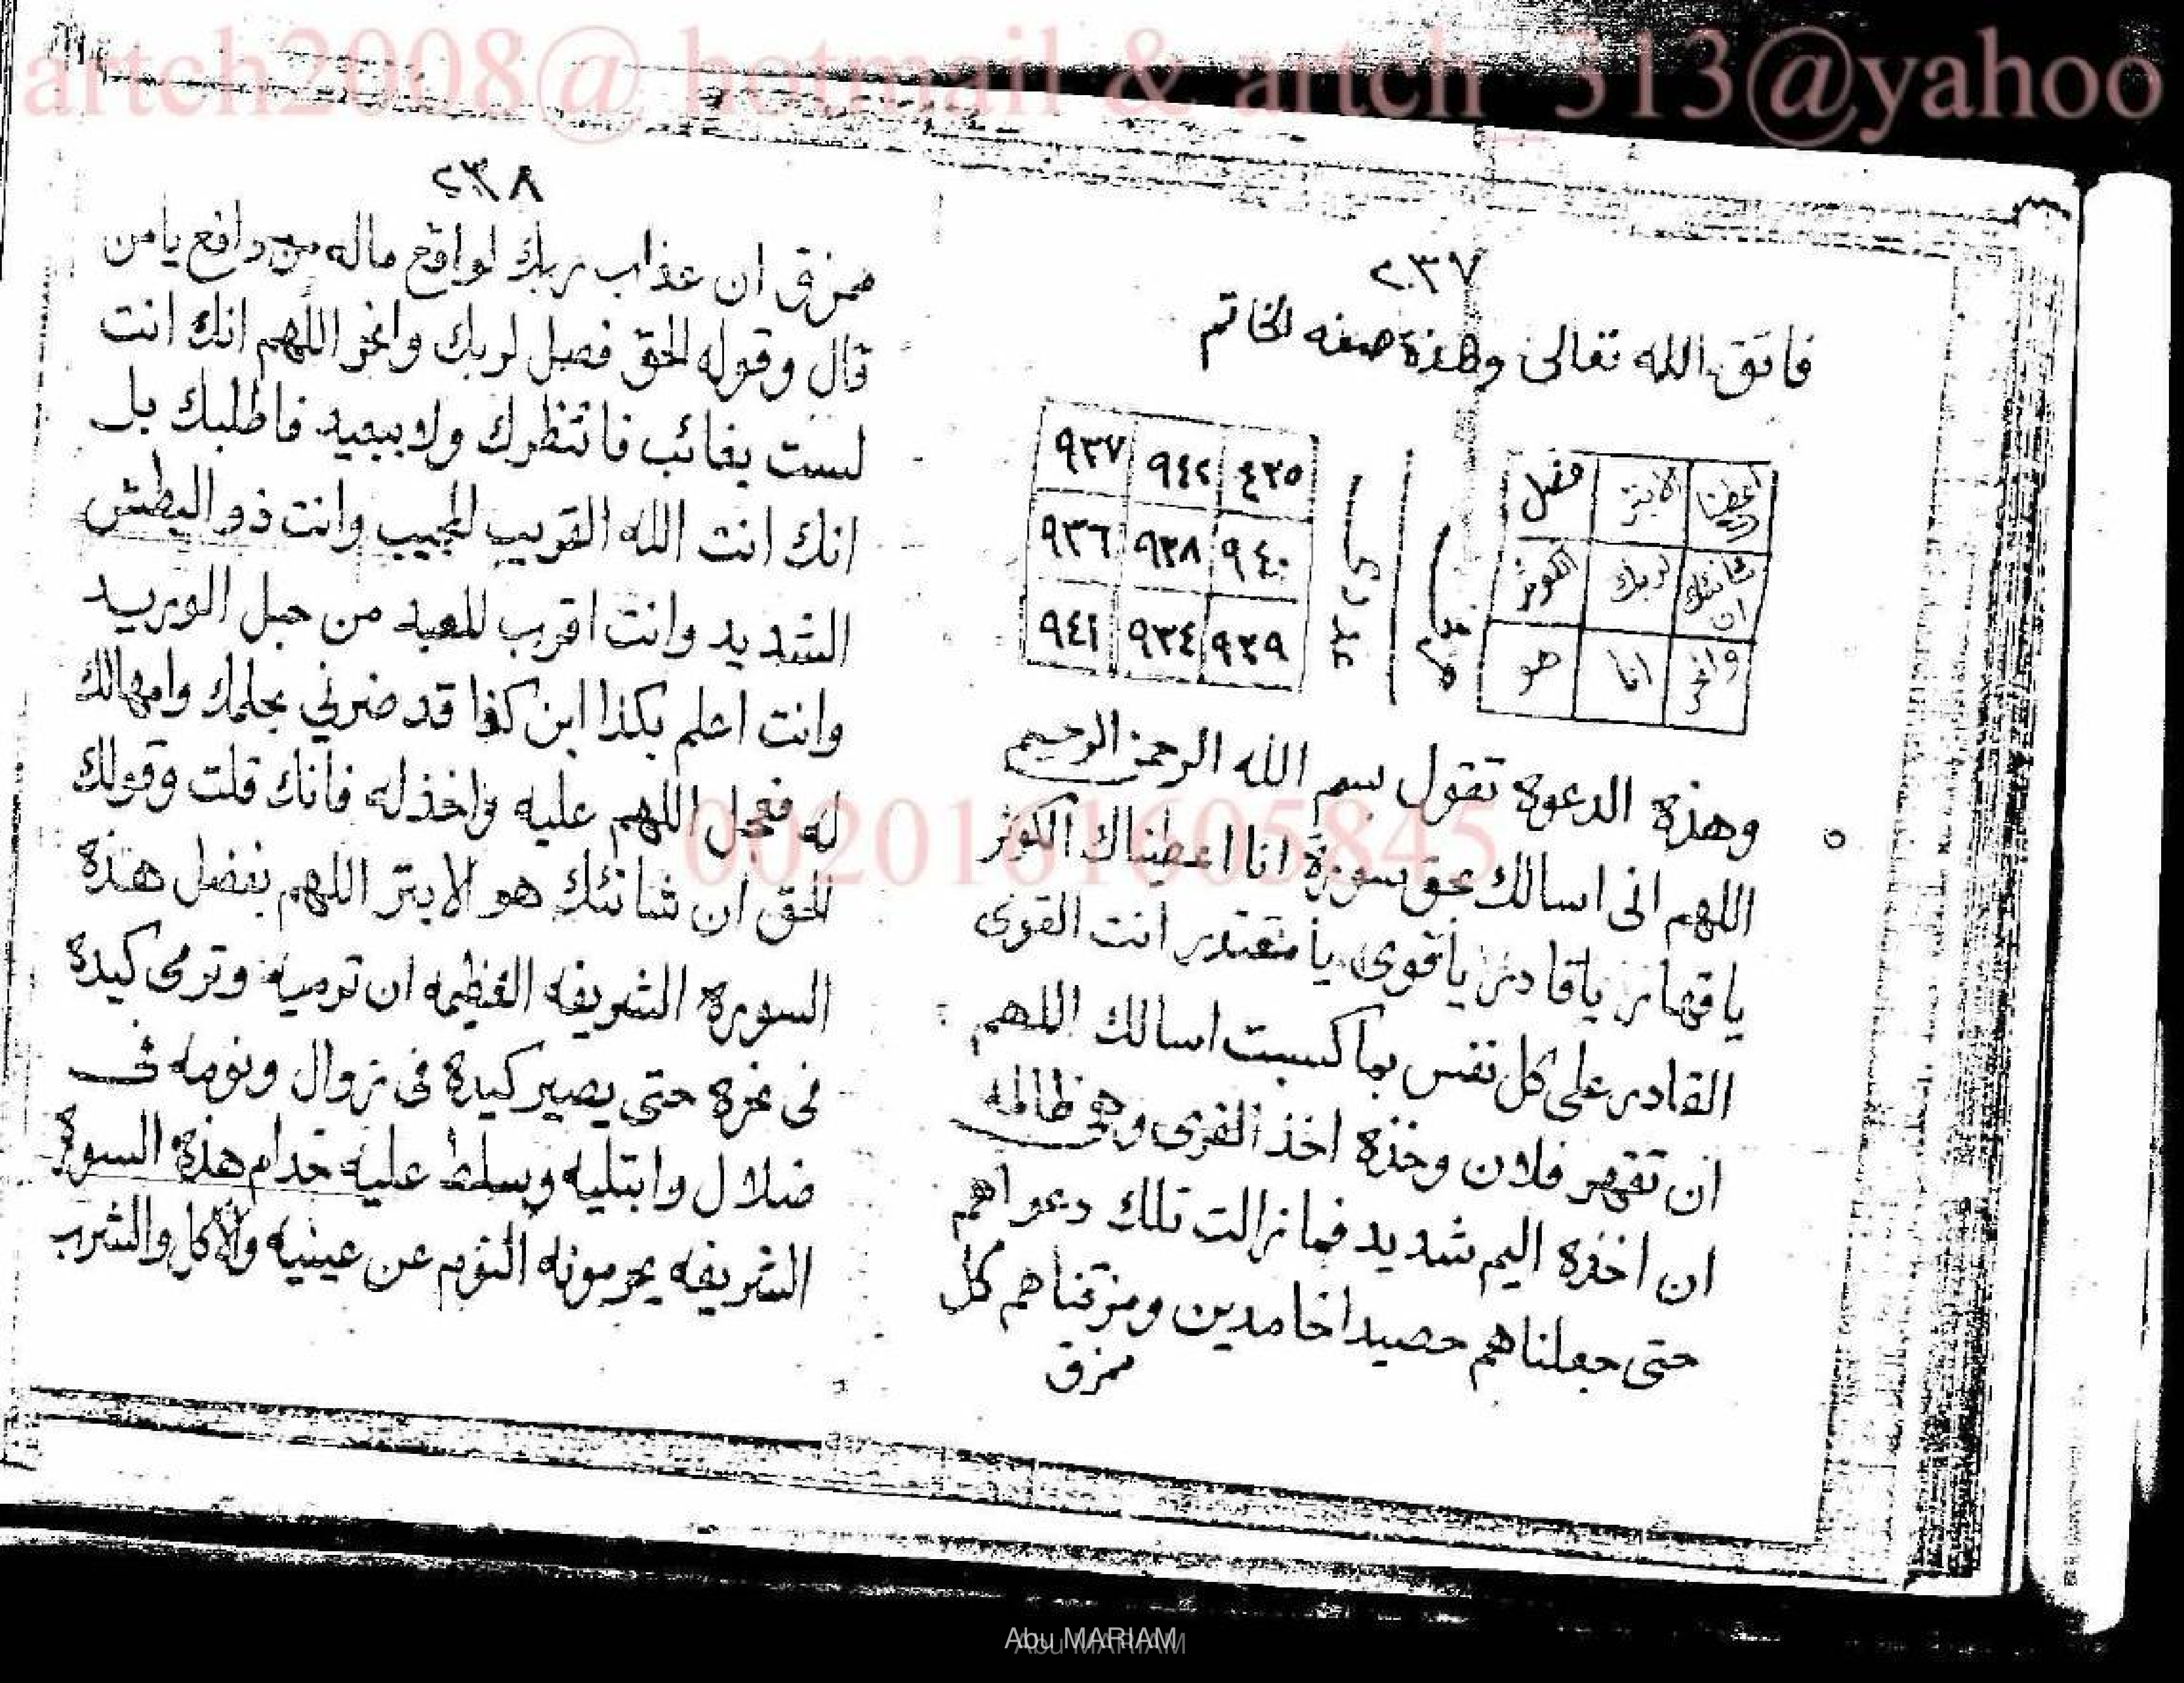 artch2008@ hotmail & artch_313@yahoo
٢٣٧
فاتق الله تعالى وهذه صفه الخاتم
اعطيناك الابتر فصل
شانئك ان لربك الكوثر
وانحر انا هو
حرفي
عددى
٤٣٥ ٩٤٢ ٩٣٧
٩٤٠ ٩٣٨ ٩٣٦
٩٣٩ ٩٣٤ ٩٤١
وهذه الدعوة تقول بسم الله الرحمن الرحيم
اللهم انى اسالك بحق سورة انا اعطيناك الكوثر
يا قهار يا قادر يا قوى يا مقتدر انت القوى
القادر على كل نفس بما كسبت اسالك اللهم
ان تقهر فلان وخذه اخذ القرى وهى ظالمه
ان اخذه اليم شديد فما زالت تلك دعواهم
حتى جعلناهم حصيدا خامدين ومزقناهم كل
ممزق
٢٣٨
ممزق ان عذاب ربك لواقع ماله من دافع يا من
قال وقوله الحق فصل لربك وانحر اللهم انك انت
لست بغائب فانتظرك ولا ببعيد فاطلبك بل
انك انت الله القريب المجيب وانت ذو البطش
الشديد وانت اقرب للعبد من حبل الوريد
وانت اعلم بكذا ابن كذا قد ضرني بحلمك وامهالك
له فعجل اللهم عليه واخذله فانك قلت وقولك
الحق ان شانئك هو الابتر اللهم بفضل هذه
السورة الشريفه العظيمه ان ترميه وترمى كيده
فى نحره حتى يصير كيده فى زوال ونومه فى
ضلال وابتليه وسلط عليه خدام هذه السورة
الشريفه يحرمونه النوم عن عينيه والاكل والشرب
0020161605845
Abu MARIAM